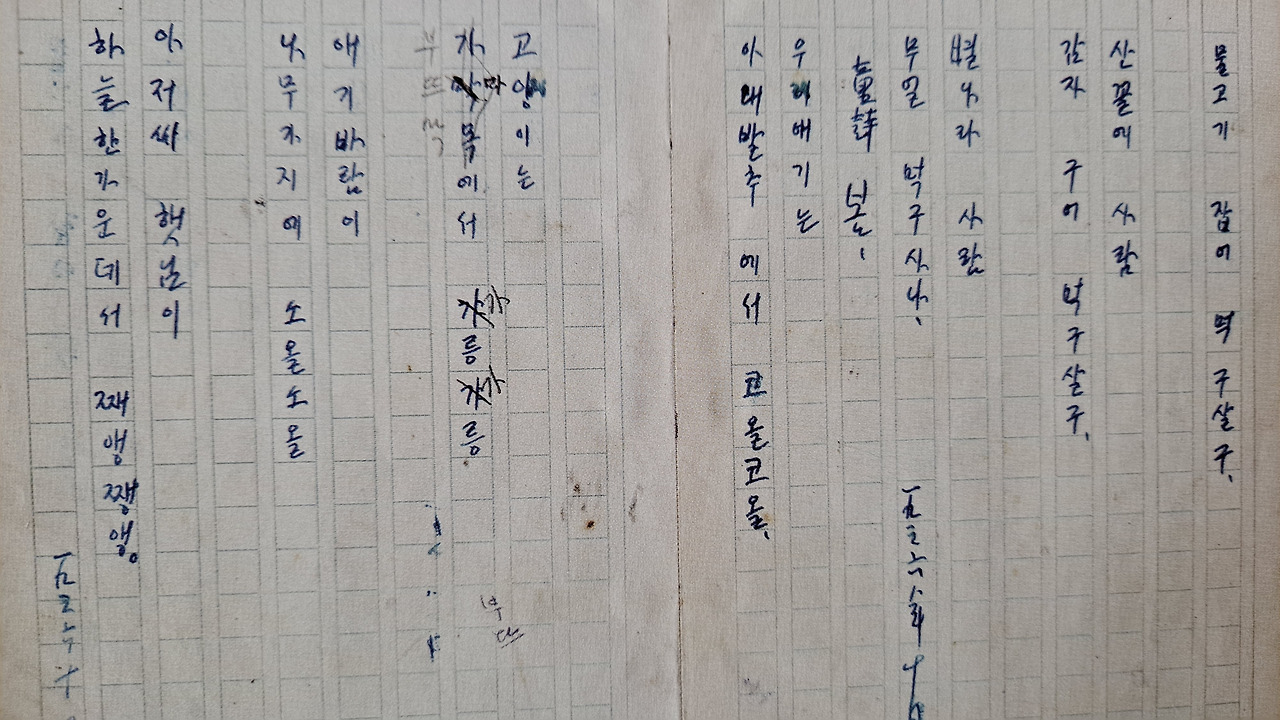 물고기 잡어 먹구살구、
산꼴에 사람
감자 구어 먹구살구、
별나라 사람
무얼 먹구사나、
童詩 봄、
우리애기는
아래발추에서 코올코올、
고양이는
가마목에서 가릉가릉
애기바람이
나무가지에 소올소올
아저싸 햇님이
하늘한가운데서 째앵째앵。